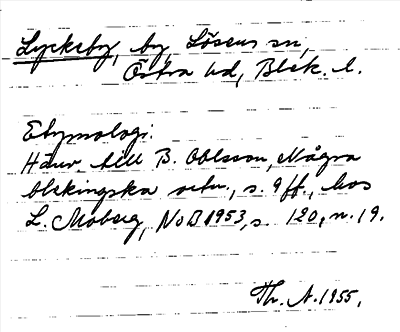 Lyckeby, by, Lösens sn,
Östra hd, Blek. l.
Etymologi.
Hänv. till B. Ohlsson, Några
blekingska ortn., s. 9 ff., hos
L. Moberg, NoB 1953, s. 120, n. 19.
Th. A. 1955.